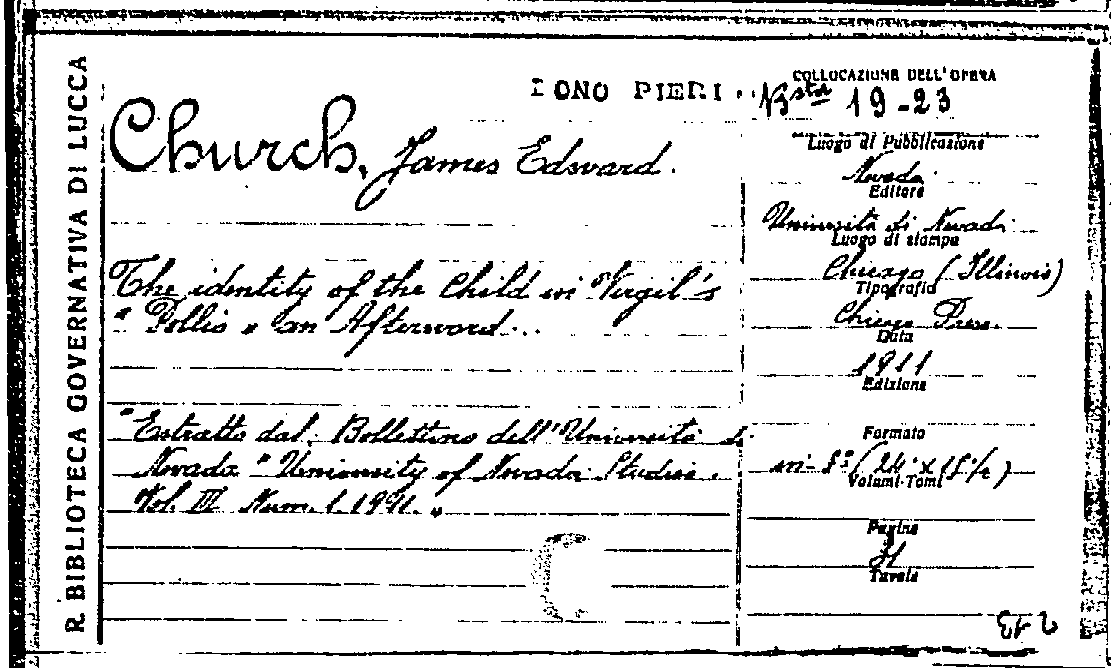 R. BIBLIOTECA GOVERNATIVA DI LUCCA
DONO PIERI
COLLOCAZIONE DELL'OPERA
Bsta 19-23
Church, James Edward.
Luogo di Pubblicazione
Nevada
Editore
Università di Nevada
Luogo di stampa
Chicago (Illinois)
Tipografia
Chicago Press.
Data
1911
Edizione
The identity of the Child in Virgil's
"Pollio" an Afterword...
"Estratto dal Bollettino dell'Università di
Nevada "University of Nevada Studies.
Vol. III Num. 1. 1991."
Formato
in-8° (24 x 15½)
Volumi-Tomi
Pagine
Tavole